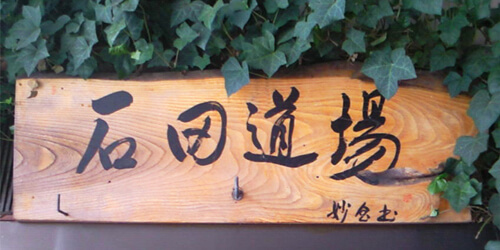 石田道場